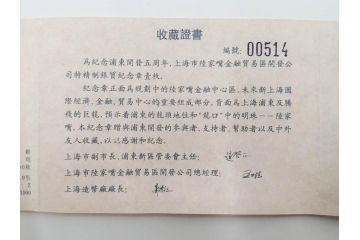 收藏證書
編號: 00514
爲紀念浦東開發五周年,上海市陸家嘴金融貿易區開發公
司特精制銀質紀念章壹枚。
紀念章正面爲規劃中的陸家嘴金融中心區,未來新上海國
際經濟、金融、貿易中心的重要組成部分,背面爲上海浦東及騰
飛的巨龍,預示着浦東的龍頭地位和“龍口”中的明珠——陸家
嘴。本紀念章贈與浦東開發的參與者、支持者、贊助者以及中外
友人收藏,以誌感謝和紀念。
上海市副市長、浦東新區管委會主任:
上海市陸家嘴金融貿易區開發公司總經理:
上海造幣廠廠長: